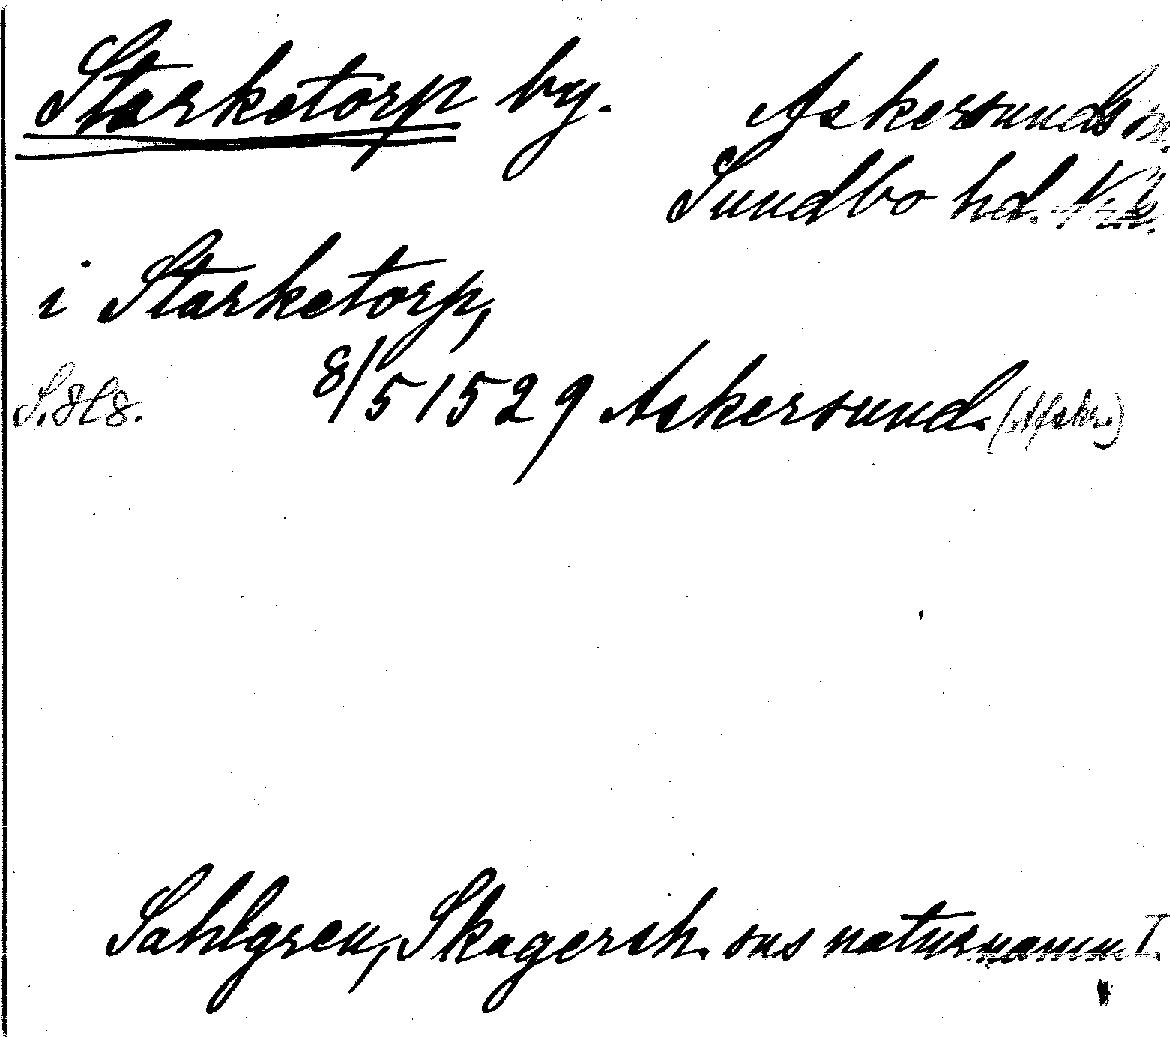 Starketorp by. Askersunds sn.
Sundbo hd. Nke.
i Starketorp,
8/5 1529 Askersund. (Afskr.)
Sahlgren, Skagersh. sns naturnamn I.